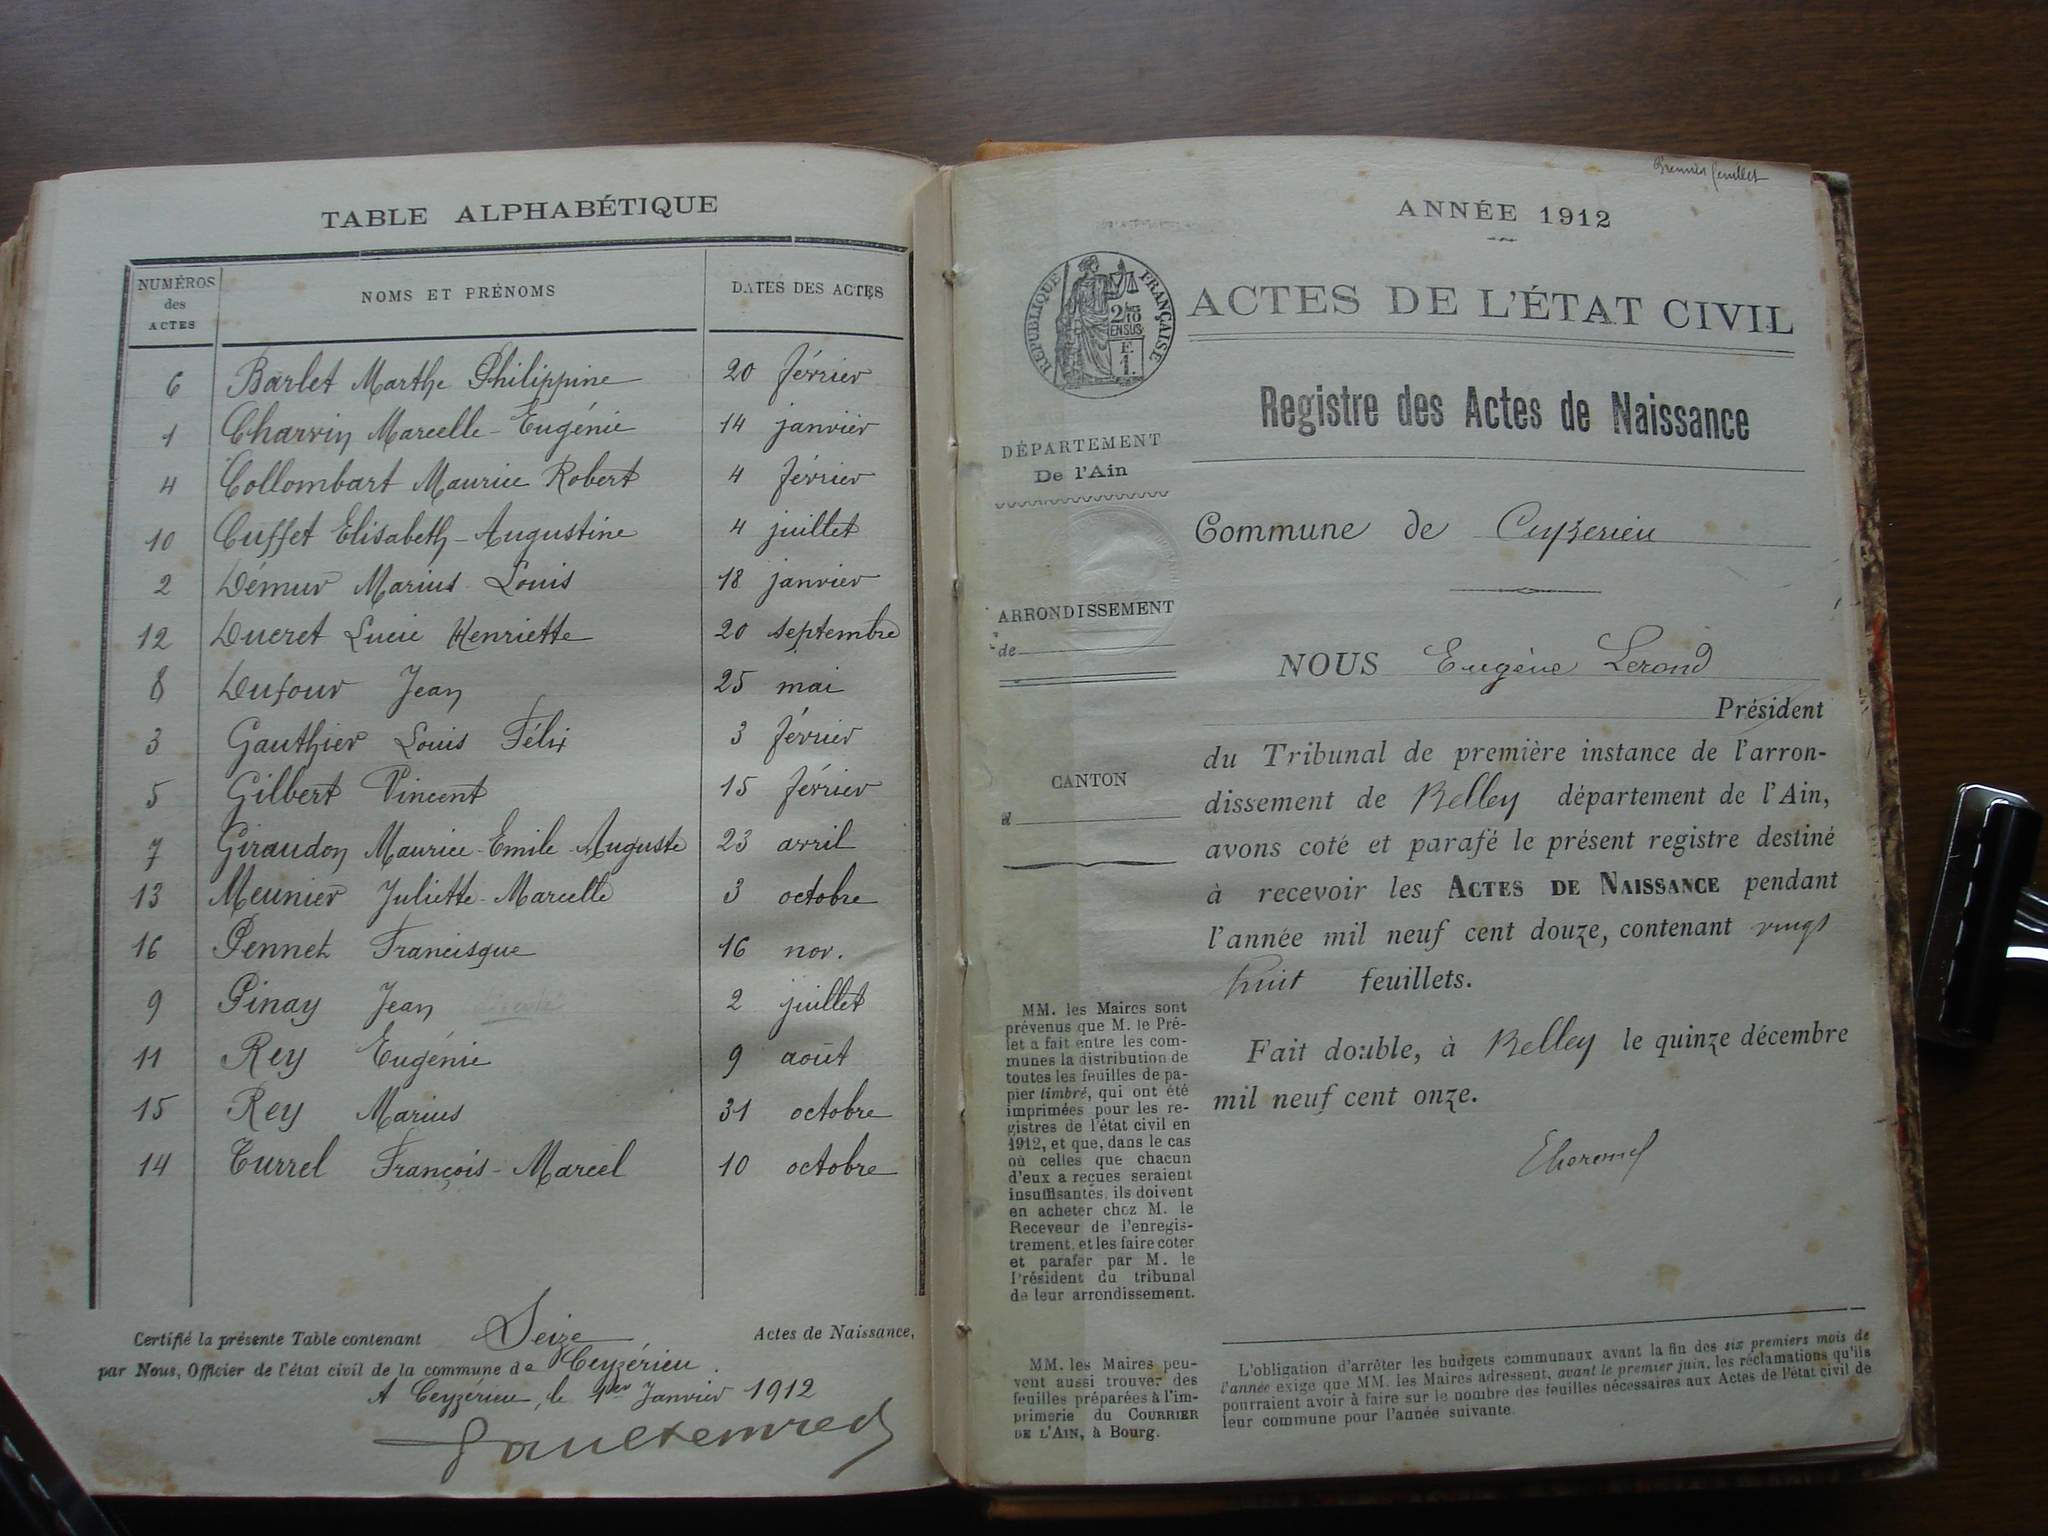 TABLE ALPHABÉTIQUE
NUMÉROS des ACTES NOMS ET PRÉNOMS DATES DES ACTES
6 Barlet Marthe Philippine 20 février
1 Charvin Marcelle-Eugénie 14 janvier
4 Collombart Maurice Robert 4 février
10 Cuffet Elisabeth-Augustine 4 juillet
2 Démur Marius Louis 18 janvier
12 Ducret Lucie Henriette 20 septembre
8 Dufour Jean 25 mai
3 Gauthier Louis Félix 3 février
5 Gilbert Vincent 15 février
7 Giraudon Maurice-Emile-Auguste 23 avril
13 Meunier Juliette-Marcelle 3 octobre
16 Pennet Francisque 16 nov.
9 Pinay Jean 2 juillet
11 Rey Eugénie 9 août
15 Rey Marius 31 octobre
14 Turrel François-Marcel 10 octobre
Certifié la présente Table contenant Seize Actes de Naissance,
par Nous, Officier de l'état civil de la commune de Ceyzérieu.
A Ceyzérieu, le 1er Janvier 1912
Premier feuillet
ANNÉE 1912
RÉPUBLIQUE FRANÇAISE
ACTES DE L'ÉTAT CIVIL
Registre des Actes de Naissance
DÉPARTEMENT
De l'Ain
Commune de Ceyzerieu
ARRONDISSEMENT
de
NOUS Eugène Lerond
Président
du Tribunal de première instance de l'arron-
CANTON
d
dissement de Belley département de l'Ain,
avons coté et parafé le présent registre destiné
à recevoir les ACTES DE NAISSANCE pendant
l'année mil neuf cent douze, contenant vingt
huit feuillets.
Fait double, à Belley le quinze décembre
mil neuf cent onze.
MM. les Maires sont
prévenus que M. le Pré-
fet a fait entre les com-
munes la distribution de
toutes les feuilles de pa-
pier timbré, qui ont été
imprimées pour les re-
gistres de l'état civil en
1912, et que, dans le cas
où celles que chacun
d'eux a reçues seraient
insuffisantes, ils doivent
en acheter chez M. le
Receveur de l'enregis-
trement, et les faire coter
et parafer par M. le
Président du tribunal
de leur arrondissement.
MM. les Maires peu-
vent aussi trouver des
feuilles préparées à l'im-
primerie du COURRIER
DE L'AIN, à Bourg.
L'obligation d'arrêter les budgets communaux avant la fin des six premiers mois de
l'année exige que MM. les Maires adressent, avant le premier juin, les réclamations qu'ils
pourraient avoir à faire sur le nombre des feuilles nécessaires aux Actes de l'état civil de
leur commune pour l'année suivante.